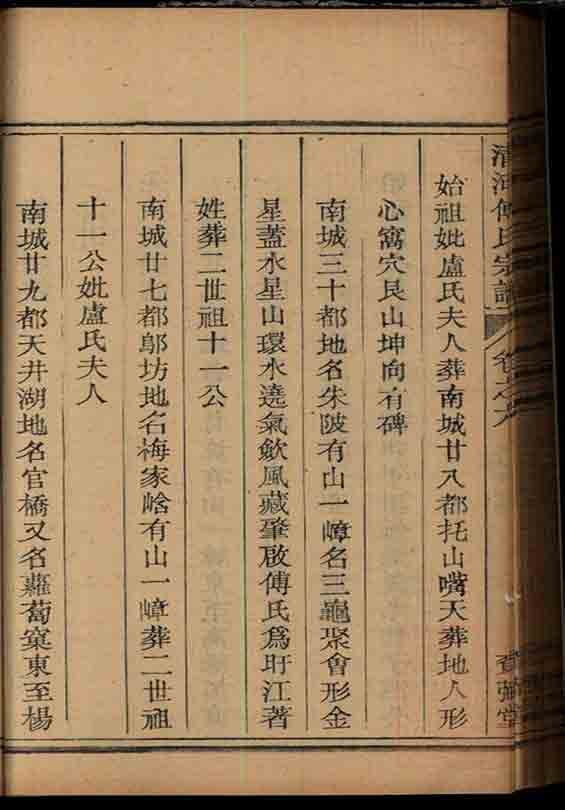 清河傅氏宗譜 卷之九
賚弼堂
始祖妣盧氏夫人葬南城廿八都托山嘴天葬地人形
心窩穴艮山坤向有碑
南城三十都地名朱陂有山一嶂名三龜聚會形金
星蓋水星山環水遶氣歛風藏肇啟傅氏爲旴江著
姓葬二世祖十一公
南城廿七都鄔坊地名梅家峆有山一嶂葬二世祖
十一公妣盧氏夫人
南城廿九都天井湖地名官橋又名蘿蔔窠東至楊